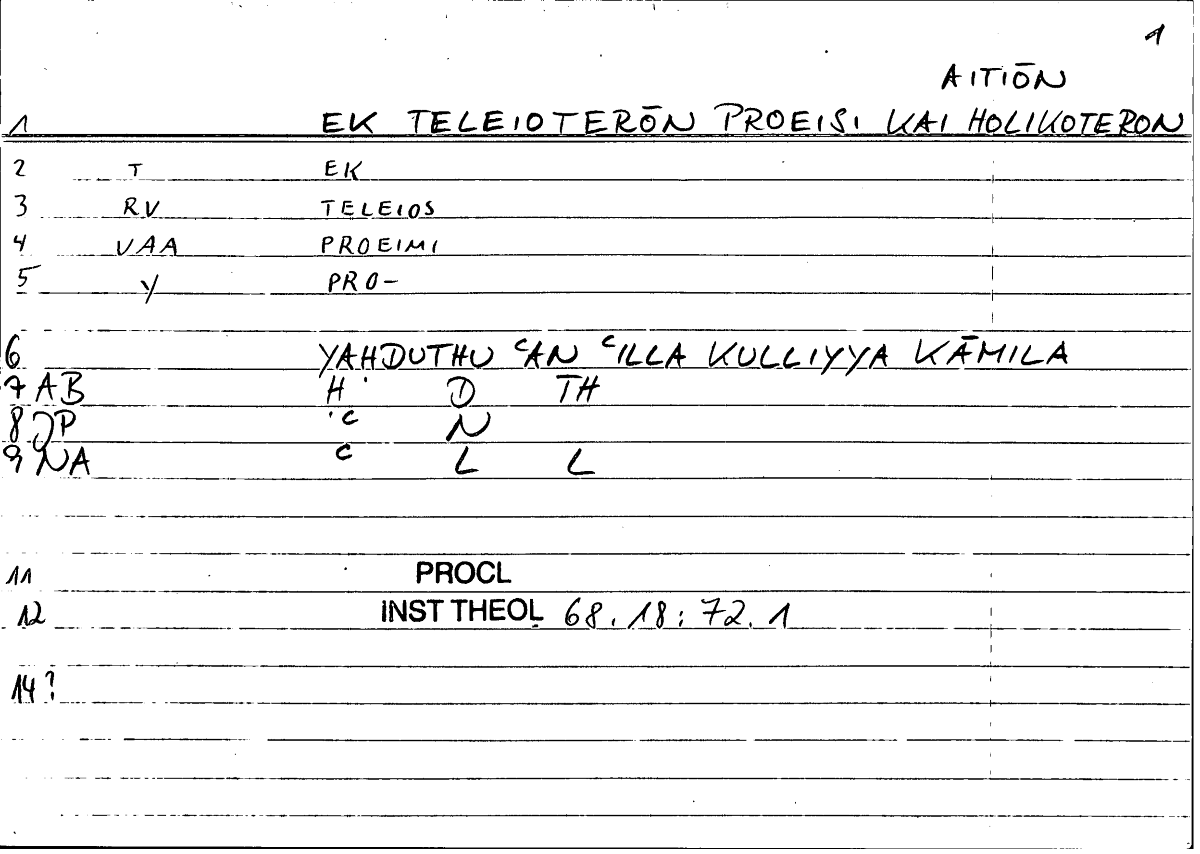 1
AITIŌN
1 EK TELEIOTERŌN PROEISI KAI HOLIKOTERON
2 T EK
3 RV TELEIOS
4 VAA PROEIMI
5 Y PRO-
6 YAHDUTHU ᶜAN ᶜILLA KULLIYYA KĀMILA
7 AB H D TH
8 JP ᶜ N
9 NA ᶜ L L
11 PROCL
12 INST THEOL 68.18:72.1
14?